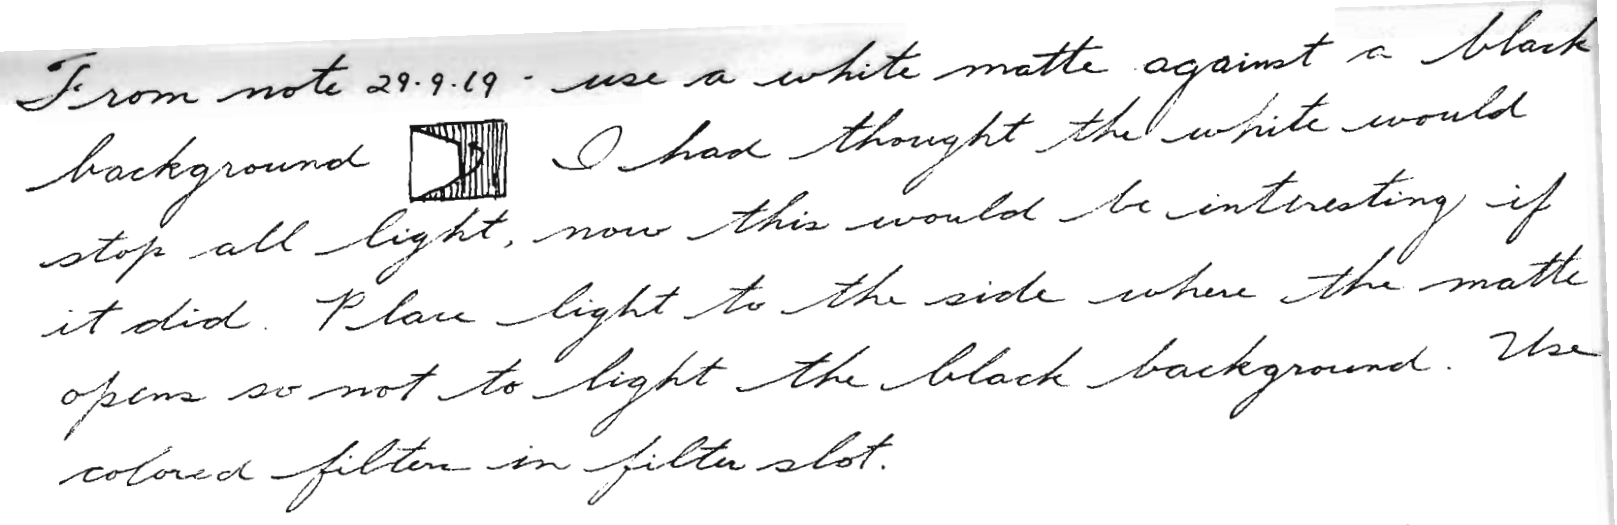 From note 29.9.19 - use a white matte against a black
background I had thought the white would
stop all light, now this would be interesting if
it did. Place light to the side where the matte
opens so not to light the black background. Use
colored filters in filter slot.